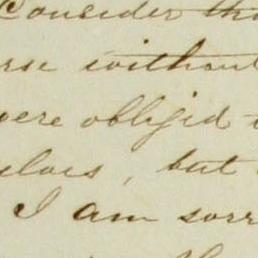 Consider tha
rse without
were obligid t
elves, but
I am sorr